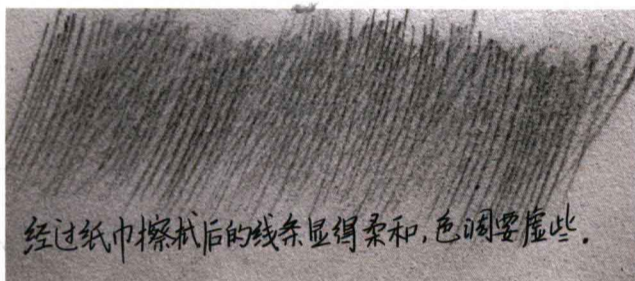 经过纸巾擦拭后的线条显得柔和,色调要虚些.